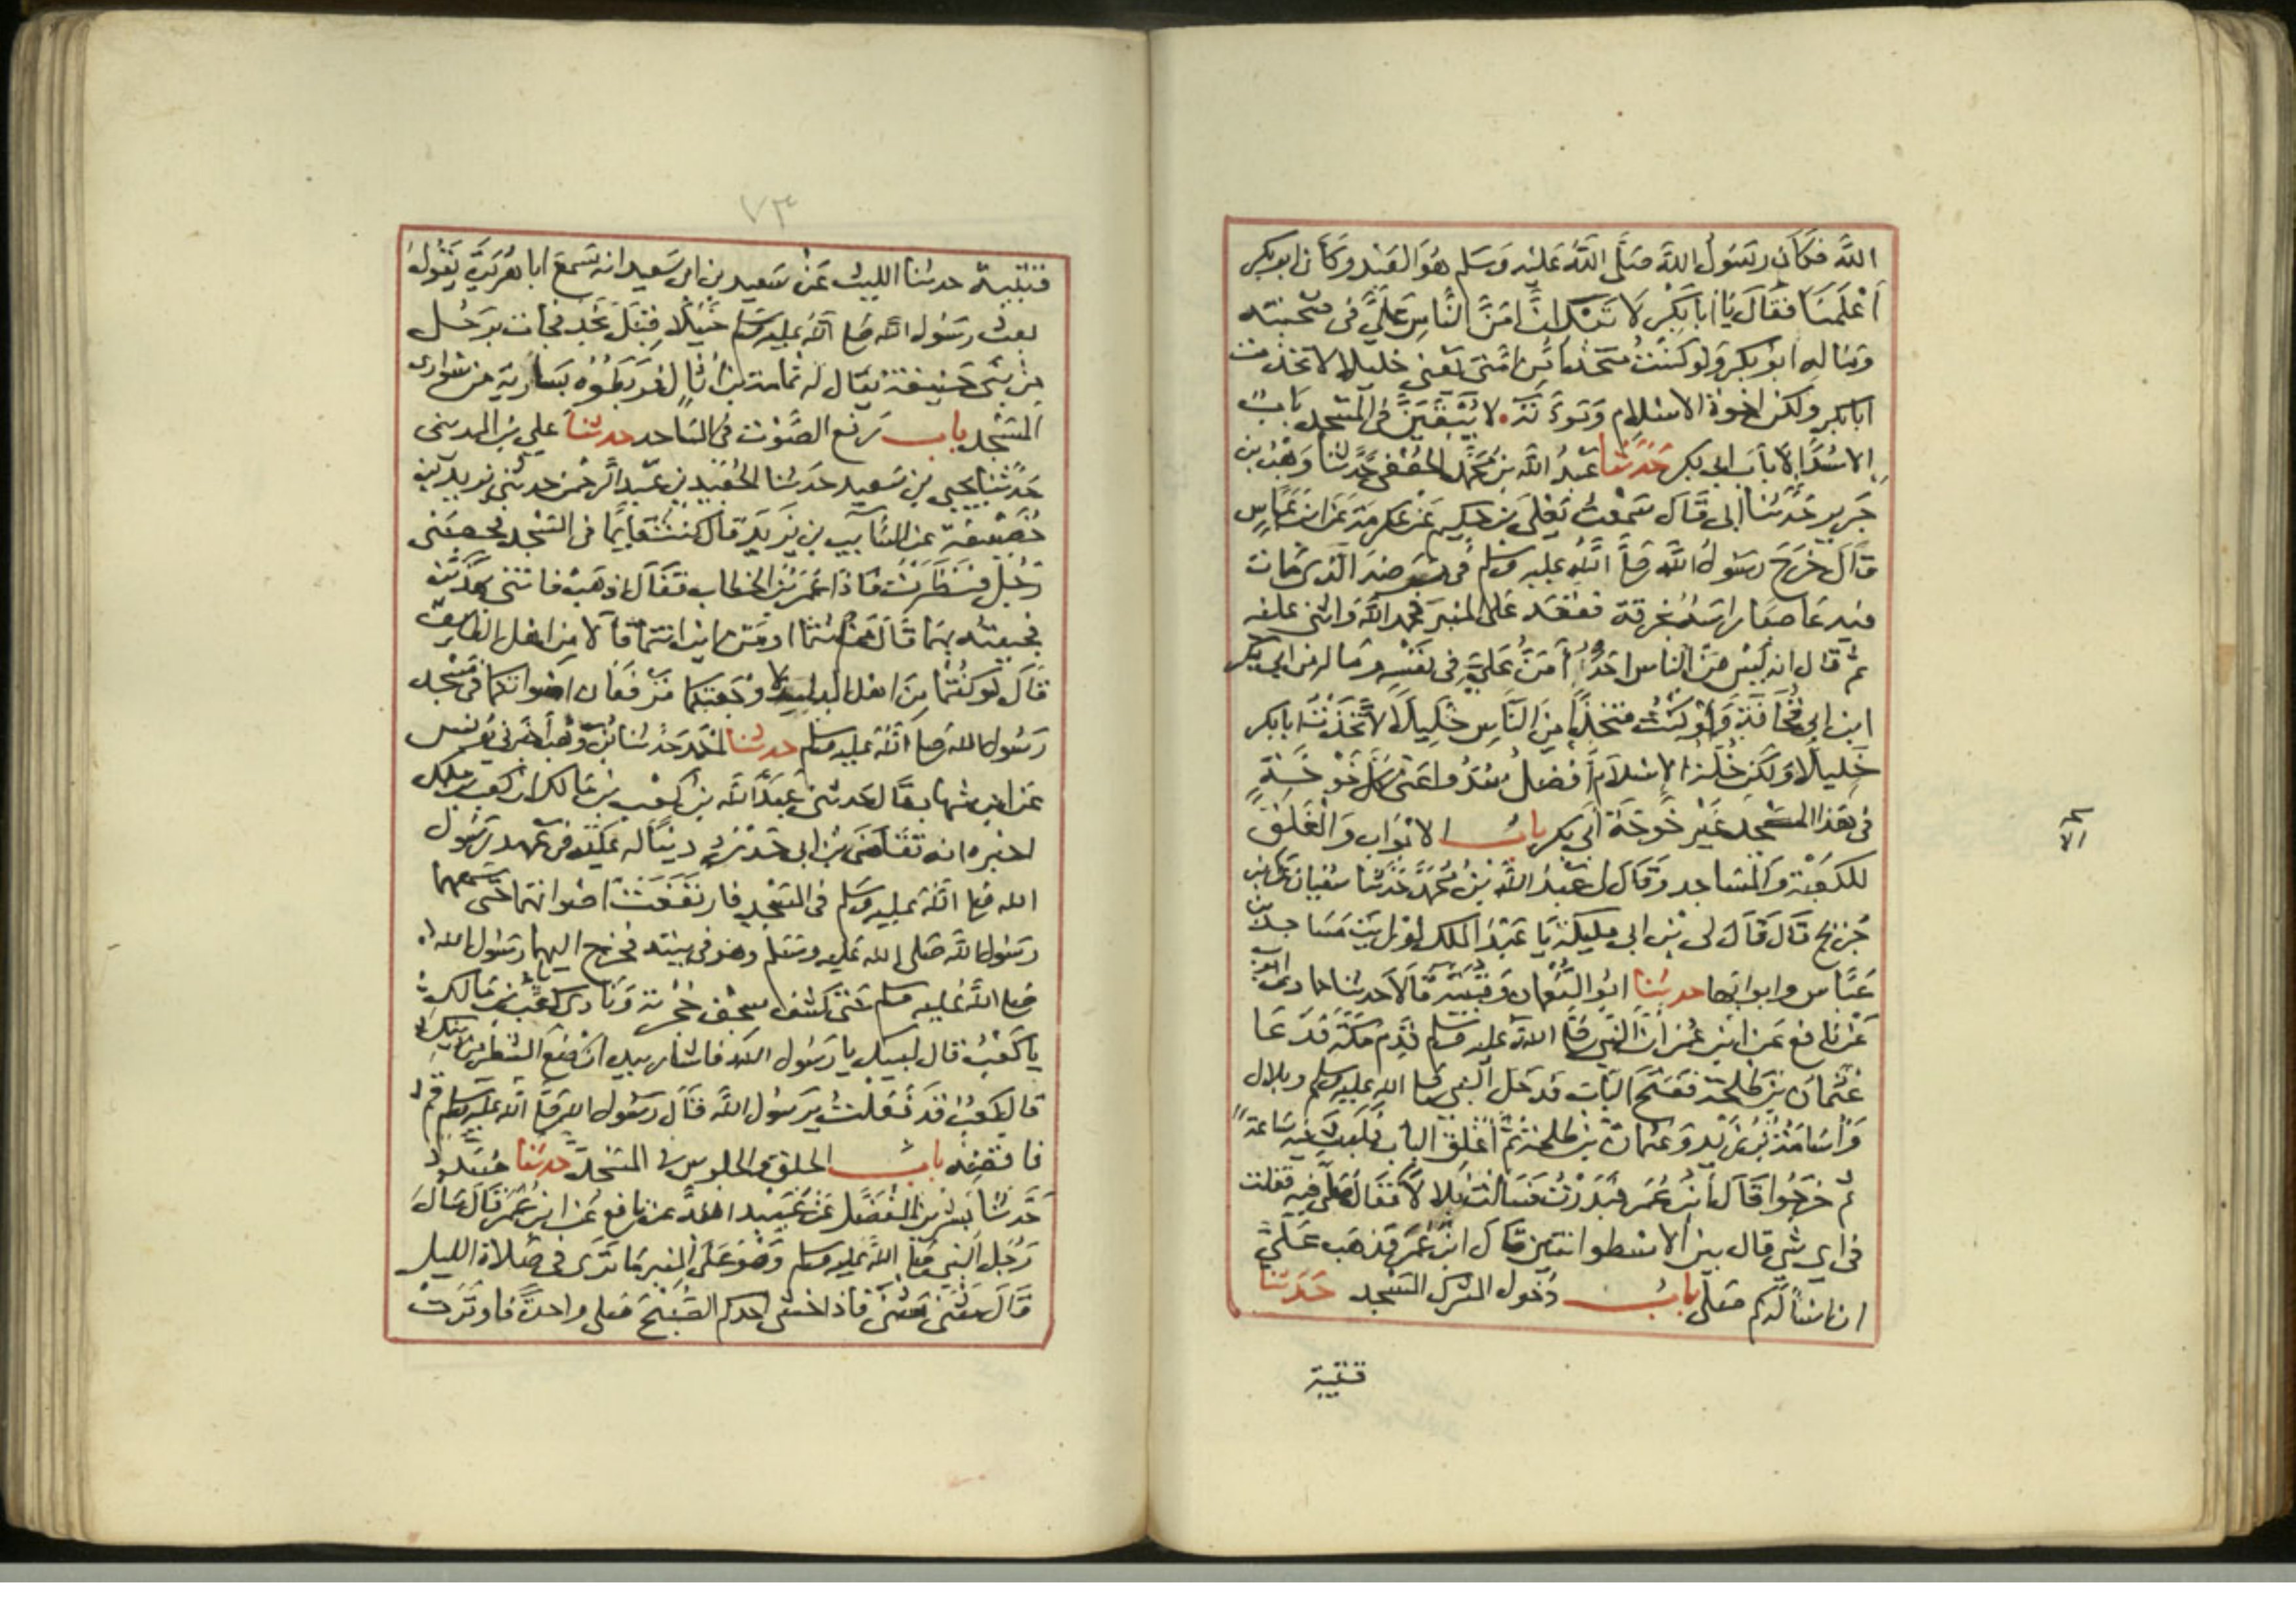 الله فكان رسول الله صلى الله عليه وسلم هو العبد وكان ابو بكر
أعلمنا فقال يا أبا بكر لا تبك ان امن الناس علي في صحبته
وماله ابو بكر ولو كنت متخذا من امتي يعني خليلا لاتخذت
ابا بكر ولكن اخوة الاسلام ومودته لا يبقين في المسجد باب
الا سد الا باب ابي بكر حدثنا عبد الله بن محمد الجعفي حدثنا وهب بن
جرير حدثنا ابي قال سمعت يعلى بن حكيم عن عكرمة عن ابن عباس
قال خرج رسول الله صلى الله عليه وسلم في مرضه الذي مات
فيه عاصبا راسه بخرقة فقعد على المنبر فحمد الله واثنى عليه
ثم قال انه ليس من الناس احد أمن علي في نفسه وماله من ابي بكر
ابن ابي قحافة ولو كنت متخذا من الناس خليلا لاتخذت ابا بكر
خليلا ولكن خلة الاسلام افضل سدوا عني كل خوخة
في هذا المسجد غير خوخة ابي بكر باب الابواب والغلق
للكعبة والمساجد وقال لي عبد الله بن محمد حدثنا سفيان عن ابن
جريج قال قال لي بن ابي مليكة يا عبد الملك لو رايت مساجد بن
عباس وابوابها حدثنا ابو النعمان وقتيبة قالا حدثنا حماد عن ايوب
عن نافع عن ابن عمر ان النبي صلى الله عليه وسلم قدم مكة فدعا
عثمان بن طلحة ففتح الباب فدخل النبي صلى الله عليه وسلم وبلال
واسامة بن زيد وعثمان بن طلحة ثم أغلق الباب فلبث فيه ساعة
ثم خرجوا قال ابن عمر فبدرت فسالت بلالا فقال صلى فيه فقلت
في اي شي قال بين الاسطوانتين قال ابن عمر فذهب علي
ان اساله كم صلى باب دخول المشرك المسجد حدثنا
قتيبة
٧٣
قتيبة حدثنا الليث عن سعيد بن ابي سعيد انه سمع ابا هريرة يقول
بعث رسول الله صلى الله عليه وسلم خيلا قبل نجد فجات برجل
من بني حنيفة يقال له ثمامة بن اثال فربطوه بسارية من سواري
المسجد باب رفع الصوت في المساجد حدثنا علي بن المديني
حدثنا يحيى بن سعيد حدثنا الجعيد بن عبد الرحمن حدثني يزيد بن
خصيفة عن السائب بن يزيد قال كنت قايما في المسجد فحصبني
رجل فنظرت فاذا عمر بن الخطاب فقال اذهب فاتني بهذين
فجيته بهما قال من انتما او من اين انتما قالا من اهل الطايف
قال لو كنتما من اهل البلد لاوجعتكما ترفعان اصواتكما في مسجد
رسول الله صلى الله عليه وسلم حدثنا احمد حدثنا بن وهب أخبرني يونس
عن ابن شهاب قال حدثني عبد الله بن كعب بن مالك ان كعب بن مالك
اخبره انه تقاضى بن ابي حدرد دينا له عليه في عهد رسول
الله صلى الله عليه وسلم في المسجد فارتفعت اصواتهما حتى سمعهما
رسول الله صلى الله عليه وسلم وهو في بيته فخرج اليهما رسول الله
صلى الله عليه وسلم حتى كشف سجف حجرته ونادى كعب بن مالك
يا كعب قال لبيك يا رسول الله فاشار بيده ان ضع الشطر من دينك
قال كعب قد فعلت يرسول الله قال رسول الله صلى الله عليه وسلم قم
فاقضه باب الحلق والجلوس في المسجد حدثنا مسدد
حدثنا بشر بن المفضل عن عبيد الله عن نافع عن ابن عمر قال سال
رجل النبي صلى الله عليه وسلم وهو على المنبر ما ترى في صلاة الليل
قال مثنى مثنى فاذا خشي احدكم الصبح صلى واحدة فاوترت